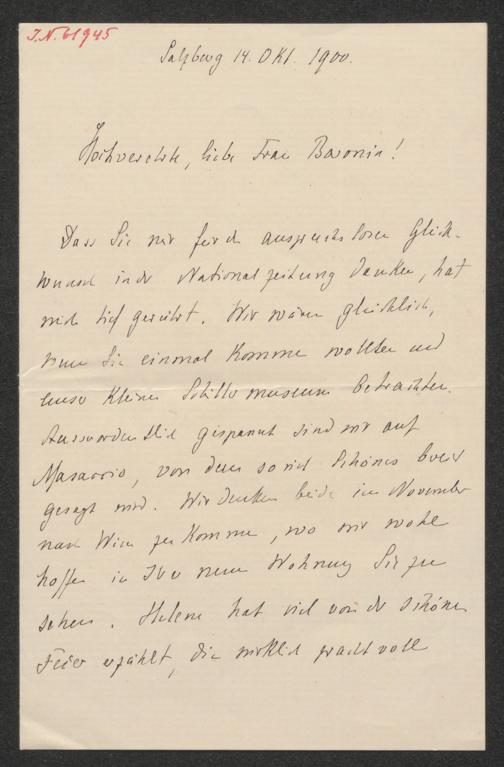 I.N. 61945
Salzburg 14. Okt. 1900.
Hochverehrte, liebe Frau Baronin!
Dass Sie mir für den anspruchslosen Glück-
wunsch in der Nationalzeitung danken, hat
mich tief gerührt. Wir wären glücklich,
wenn Sie einmal kommen wollten und
unser kleines Schillermuseum betrachten.
Ausserordentlich gespannt sind wir auf
Masaccio, von dem so viel Schönes
gesagt wird. Wir denken beide im November
nach Wien zu kommen, wo wir wohl
hoffen in Ihrer neuen Wohnung Sie zu
sehen. Helene hat viel von der schönen
Feier erzählt, die wirklich prachtvoll